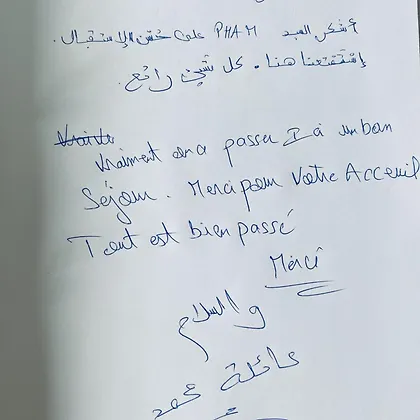 أشكر السيد PHAM على حُسْن الإستقبال.
إستَمْتَعنا هنا. كل شيئ رائع.
Vraiment on a passer I à un bon
Séjour. Merci pour Vôtre Acceuil
Tout est bien passé
Merci
والسلام
عائلة محمد